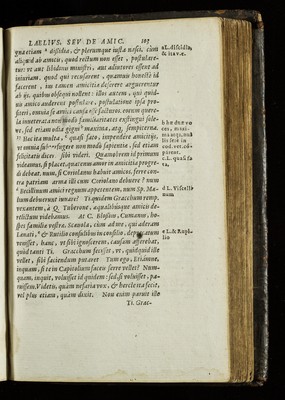 LAELIVS. SEV DE AMIC. 107
quaetiam dissidia, & plerumque iusta nasci, cùm
aliquid ab amicis, quod rectum non esset, postulare-
tur: vt aut libidinis ministri, aut adiutores essent ad
iniuriam. quod qui recusarent, quamuis honestè id
facerent, ius tamen amicitiae deserere arguerentur
ab iis, quibus obsequi nollent: illos autem, qui quid-
uis amico auderent postulare, postulatione ipsa pro-
fiteri, omnia se amici causa esse facturos. eorum quere-
la inueterata non modò familiaritates exstingui sole-
re, sed etiam odia gigni maxima, atq; sempiterna.
Haec ita multa, quasi fata, impendere amicitijs:
vt omnia subterfugere non modò sapientiae, sed etiam
felicitatis dicer& sibi videri. Quamobrem id primum
videamus, si placet, quatenus amor in amicitia progre-
di debeat. num, si Coriolanus habuit amicos, ferre con-
tra patriam arma illi cum Coriolano debuere? num
Becillinum amici regnum appetentem, num Sp. Mae-
lium debuerunt iuuare? Ti. quidem Gracchum remp.
vexantem, à Q. Tuberone, aequalibusque amicis de-
relictum videbamus. At C. Blosius, Cumanus, ho-
spes familiae vestrae, Scaeuola, cùm ad me, qui aderam
Laenati, & Rutilio consulibus in consilio, deprecatum
venisset, hanc, vt sibi ignoscerem, causam afferebat,
quòd tanti Ti. Gracchum fecisset, vt, quidquid ille
vellet, sibi faciendum putaret. Tum ego, Etiamne,
inquam, si te in Capitolium faces ferre vellet? Num-
quam, inquit, voluisset id quidem: sed, si voluisset, pa-
ruissem. Videtis, quàm nefaria vox. & hercle ita fecit,
vel plus etiam, quàm dixit. Non enim paruit ille
Ti. Grac-
a L. dissidia,
b he duo vo
ces, maxi-
ma atq;
in
cod. vet.
c L. quasi fa
ta,
d L. Viscelli
num
e L. & Rupi-
lio